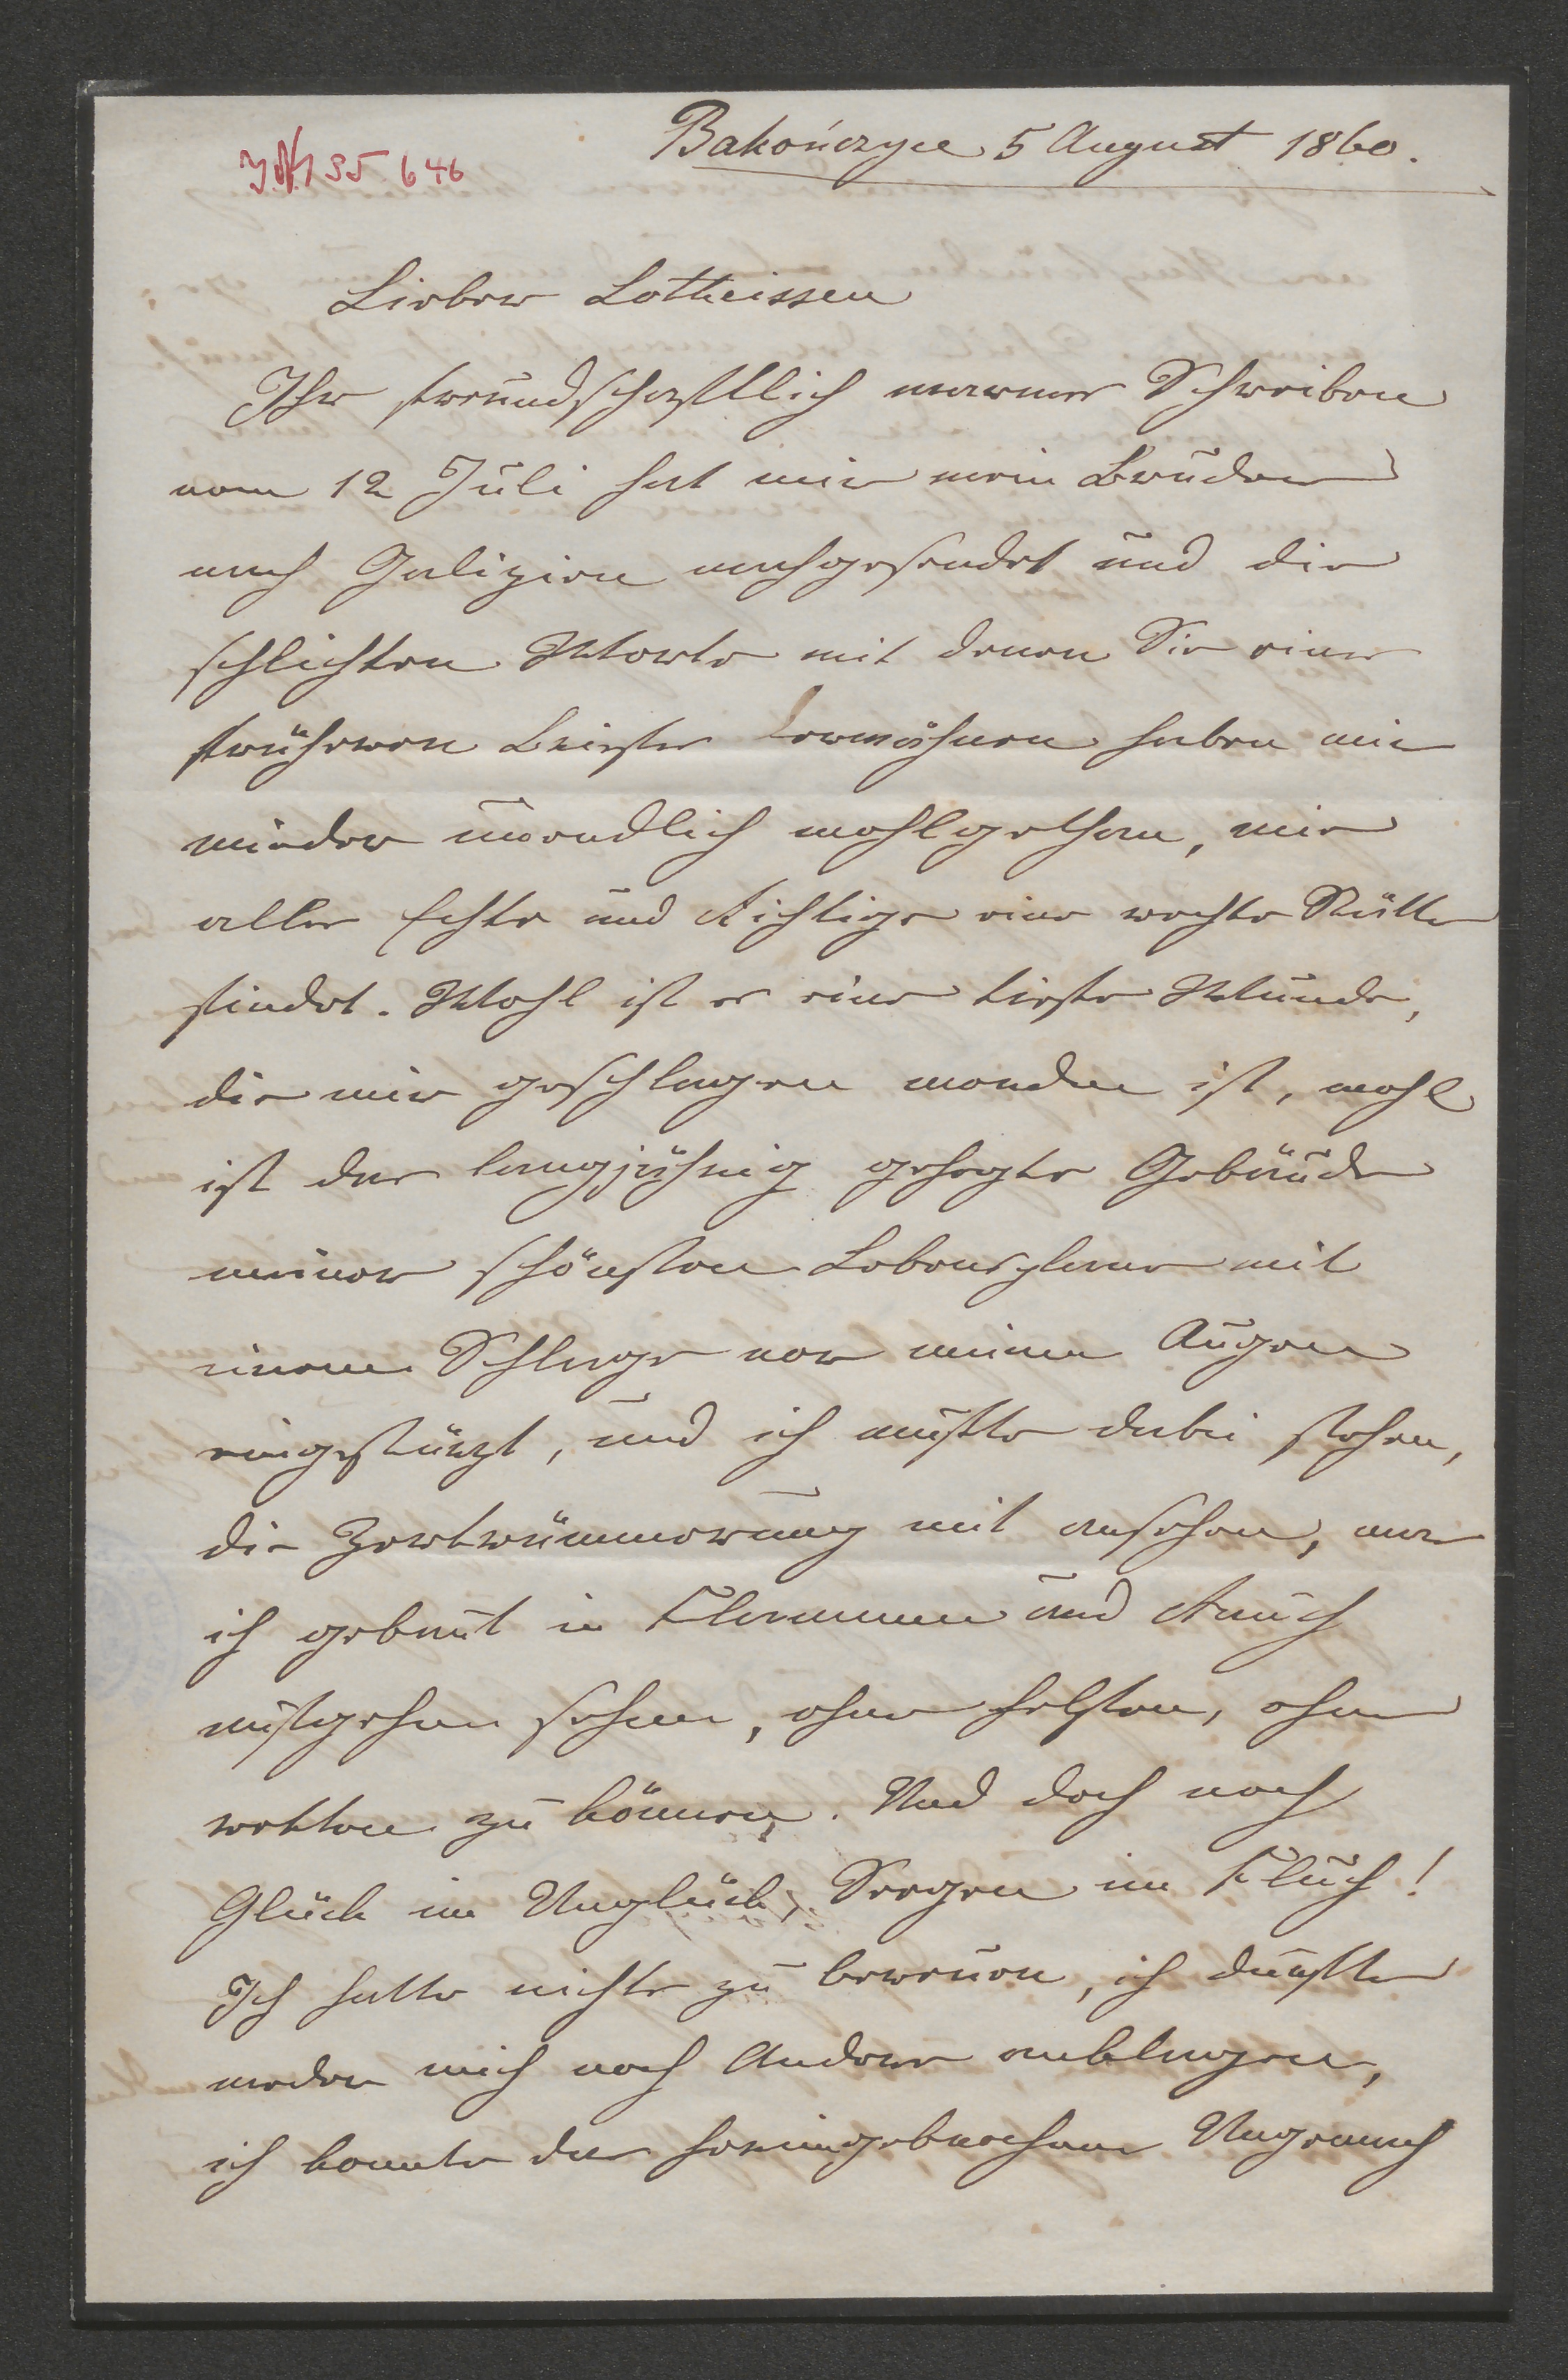 J.N. 135 646
Bakończyce 5 August 1860.
Lieber Lotheissen
Ihr freundschaftlich warmes Schreiben
vom 12 Juli hat mir mein Bruder
nach Galizien nachgesendet und die
schlichten Worte mit denen Sie eines
früheren Briefes erwähnen haben mir
wieder unendlich wohlgethan, wie
alles Echte und Richtige eine rechte Stätte
findet. Wohl ist es eine tiefe Wunde,
die mir geschlagen worden ist, wohl
ist das langjährig gehegte Gebäude
meiner schönsten Lebensplane mit
einem Schlage vor meinen Augen
eingestürzt, und ich mußte dabei stehen,
die Zertrümmerung mit ansehen, was
ich gebaut in Flammen und Rauch
aufgehen sehen, ohne helfen, ohne
retten zu können. Und doch noch
Glück im Unglück, Seegen im Fluch!
Ich hatte nichts zu bereuen, ich durfte
weder mich noch Andere anklagen,
ich konnte das hereingebrochene Ungemach